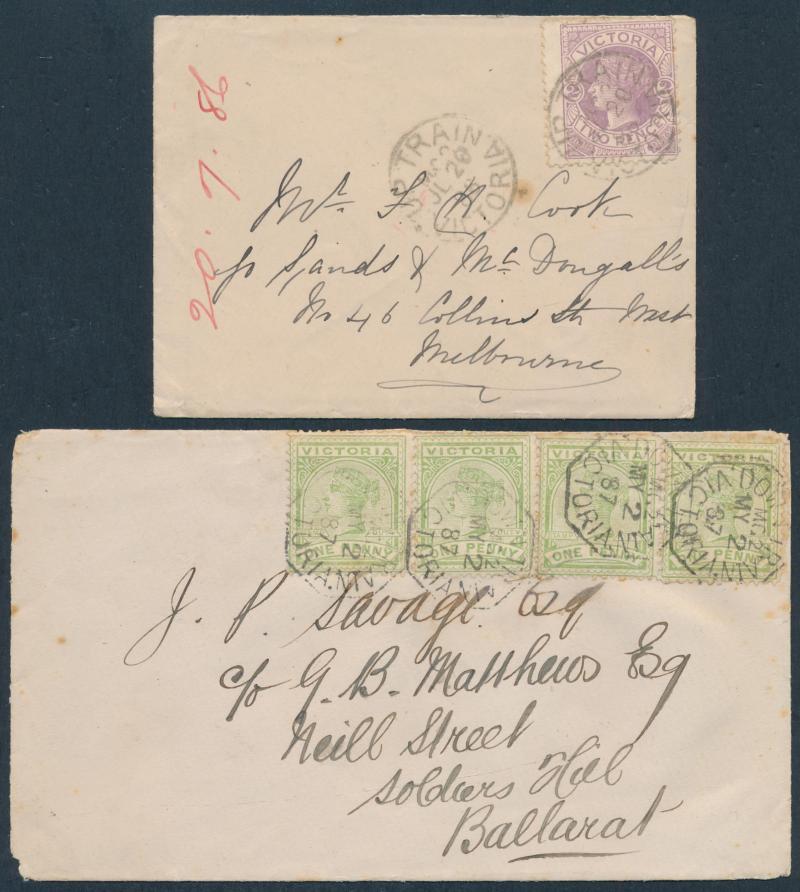 20.7.86
VICTORIA
TWO PENCE
UP TRAIN
JL 20
VICTORIA
Mr F. A. Cook
c/o Sands & McDougall's
No 46 Collins St West
Melbourne
VICTORIA
ONE PENNY
MY 2
87
VICTORIA
PENNY
MY 2
87
VICTORIA
ONE
MY 2
87
VICTORIA
PENNY
DOWN
MY 2
87
J. P. Savage Esq
c/o G. B. Matthews Esq
Neill Street
Soldiers Hill
Ballarat